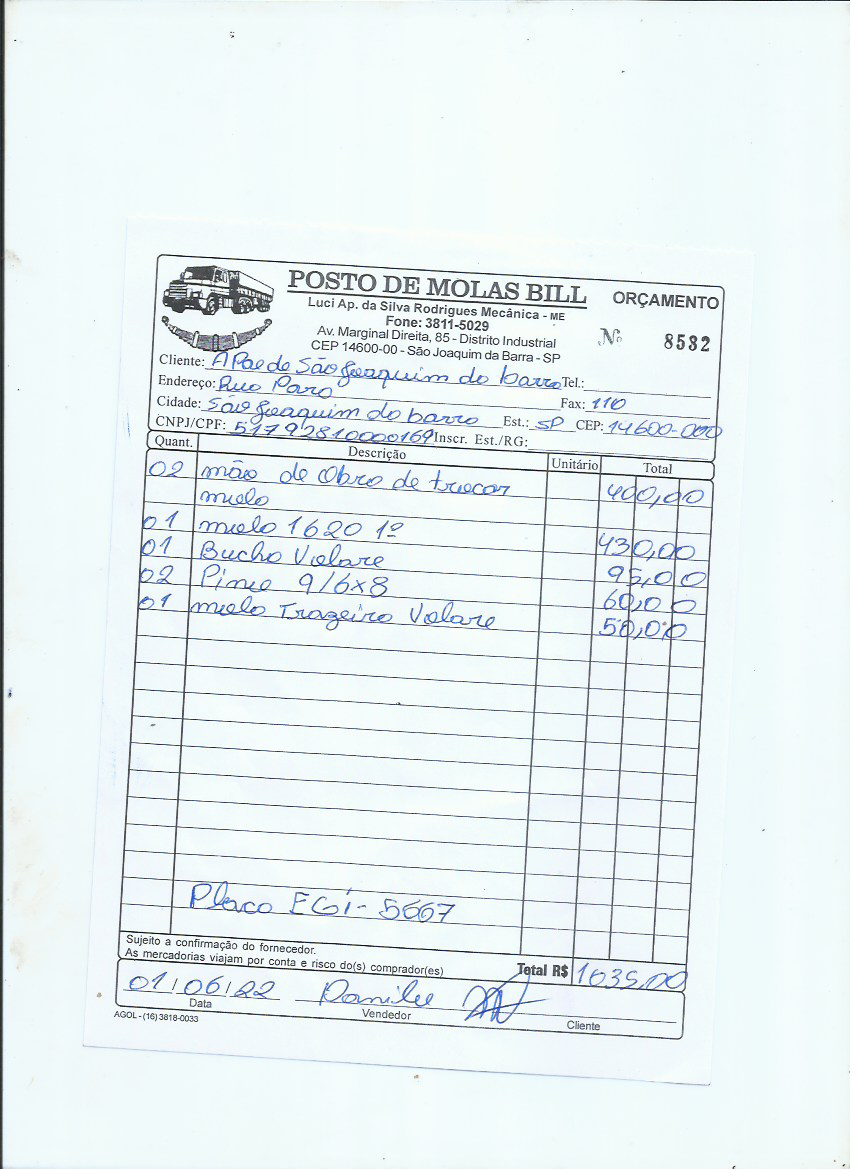 POSTO DE MOLAS BILL
ORÇAMENTO
Luci Ap. da Silva Rodrigues Mecânica - ME
Fone: 3811-5029
Av. Marginal Direita, 85 - Distrito Industrial
CEP 14600-00 - São Joaquim da Barra - SP
Nº 8532
Cliente: APae de São Joaquim do barra Tel.:
Endereço: Rua Para Fax: 110
Cidade: São Joaquim do barra Est.: SP CEP: 14600-000
CNPJ/CPF: 51792810000169 Inscr. Est./RG:
Quant. Descrição Unitário Total
02 mão de Obra de trocar 400,00
mola
01 mola 1620 1º 430,00
01 Bucha Volare 95,00
02 Pino 9/6x8 60,00
01 mola Trazeira Volare 50,00
Placa EGI-5667
Sujeito a confirmação do fornecedor.
As mercadorias viajam por conta e risco do(s) comprador(es)
Total R$ 1035,00
01/06/22 Danilu
Data Vendedor Cliente
AGOL - (16) 3818-0033